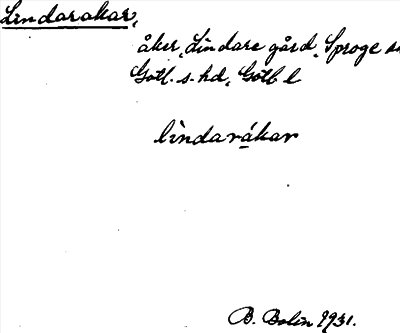 Lindarakar,
åker, Lindare gård, Sproge s
Gotl. s. hd, Gotl. l
lìndarákar
B. Bolin 1931.